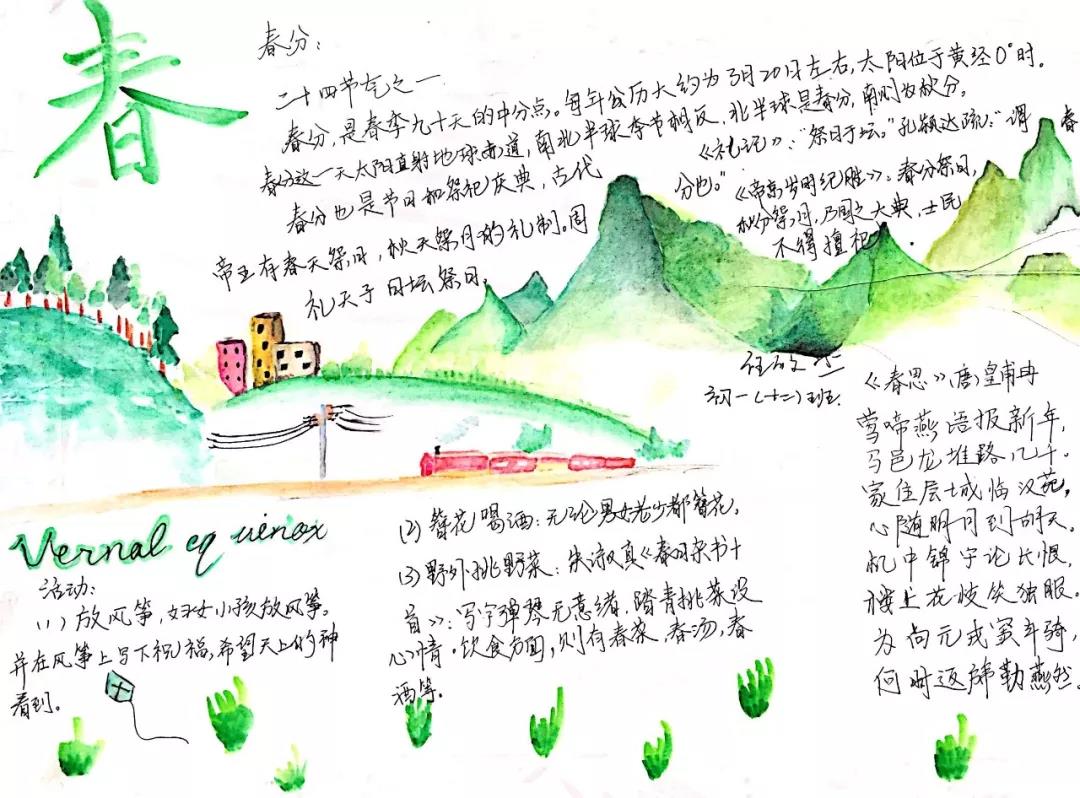 春
春分:
二十四节气之一
春分,是春季九十天的中分点。每年公历大约为3月20日左右,太阳位于黄经0°时。
春分这一天太阳直射地球赤道,南北半球季节相反,北半球是春分,南则为秋分。
春分也是节日和祭祀庆典,古代
帝王有春天祭日,秋天祭月的礼制。周
礼天子日坛祭日。
《礼记》:“祭日于坛。”孔颖达疏:“谓春
分也。”
《帝京岁时纪胜》:春分祭日,
秋分祭月,乃国之大典,士民
不得擅祀
初一(十二)班
《春思》(唐)皇甫冉
莺啼燕语报新年,
马邑龙堆路几千.
家住层城临汉苑,
心随明月到胡天.
机中锦字论长恨,
楼上花枝笑独眠.
为问元戎窦车骑,
何时返旆勒燕然.
Vernal equinox
活动:
(1)放风筝,妇女小孩放风筝。
并在风筝上写下祝福,希望天上的神
看到。
(2)簪花喝酒:无论男女老少都簪花,
(3)野外挑野菜:朱淑真《春日杂书十
首》:写字弹琴无意绪,踏青挑菜没
心情.饮食方面,则有春菜、春汤,春
酒等。